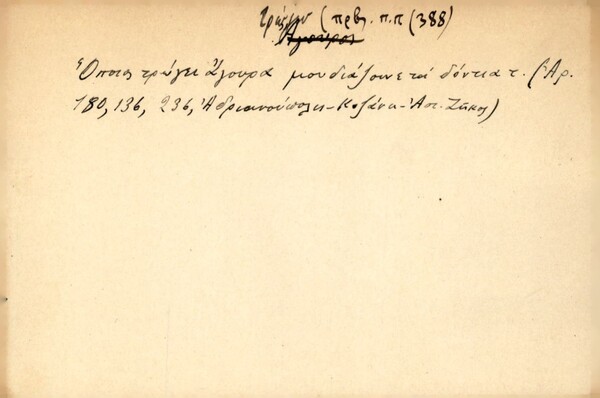 τρώγω (πρβ. π.π (388)
Ἄγουρος
Ὅποιος τρώγει ἄγουρα μουδιάζουνε τὰ δόντια τ. (Ἀρ.
180, 136, 236, Ἀδριανούπολις - Κοζάνη - Ἀπ. Ζάκος)